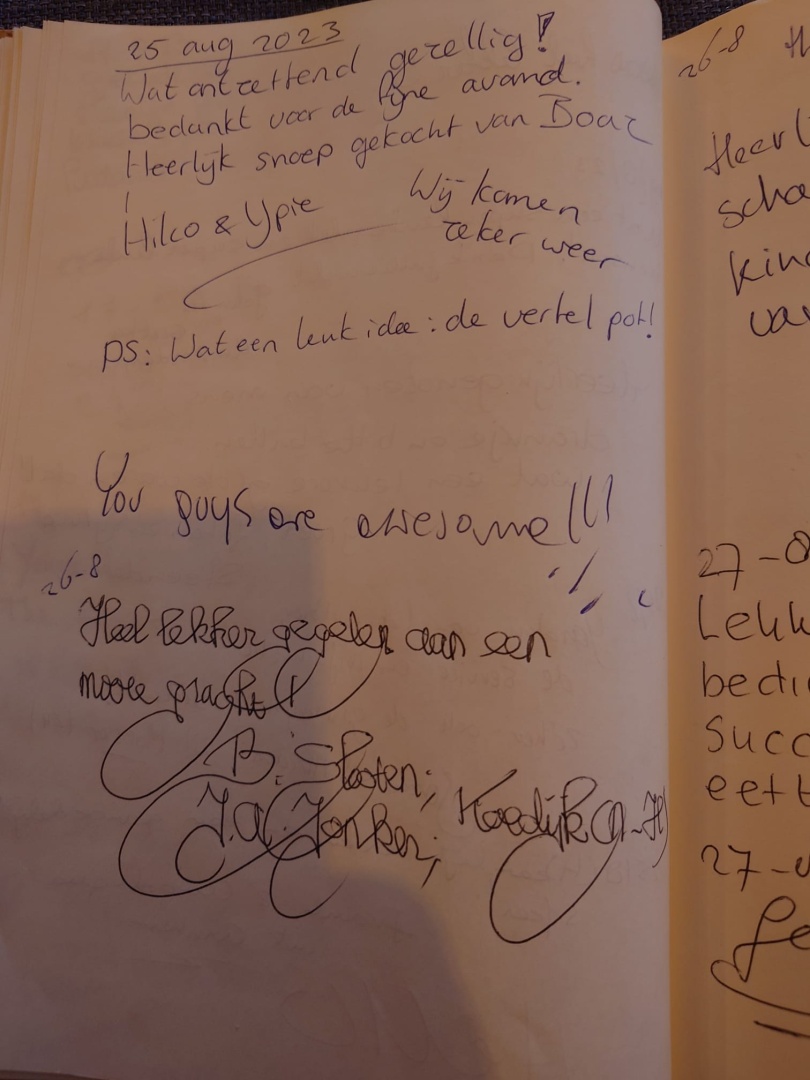 25 aug 2023
Wat ontzettend gezellig!
bedankt voor de fijne avond.
Heerlijk snoep gekocht van Boaz
!
Hilco & Ypie
Wij komen
zeker weer
PS: Wat een leuk idee: de vertel pot!
You guys are awesome!!!
26-8
Heel lekker gegeten aan een
mooie gracht!
B. Slooten;
J.A. Jonker; Koedijk (N-H)
26-8 H
Heerl
scha
kin
va
27-0
Lekk
bedi
Succ
eett
27-